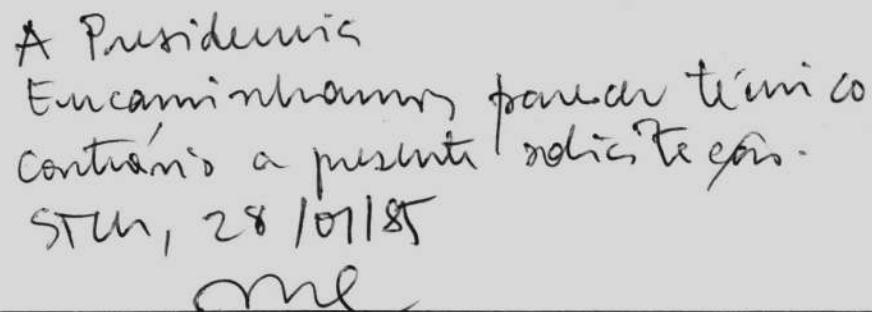 A Presidencia
Encaminhamos parecer técnico
contrário a presente solicitação.
STCR, 28/01/85